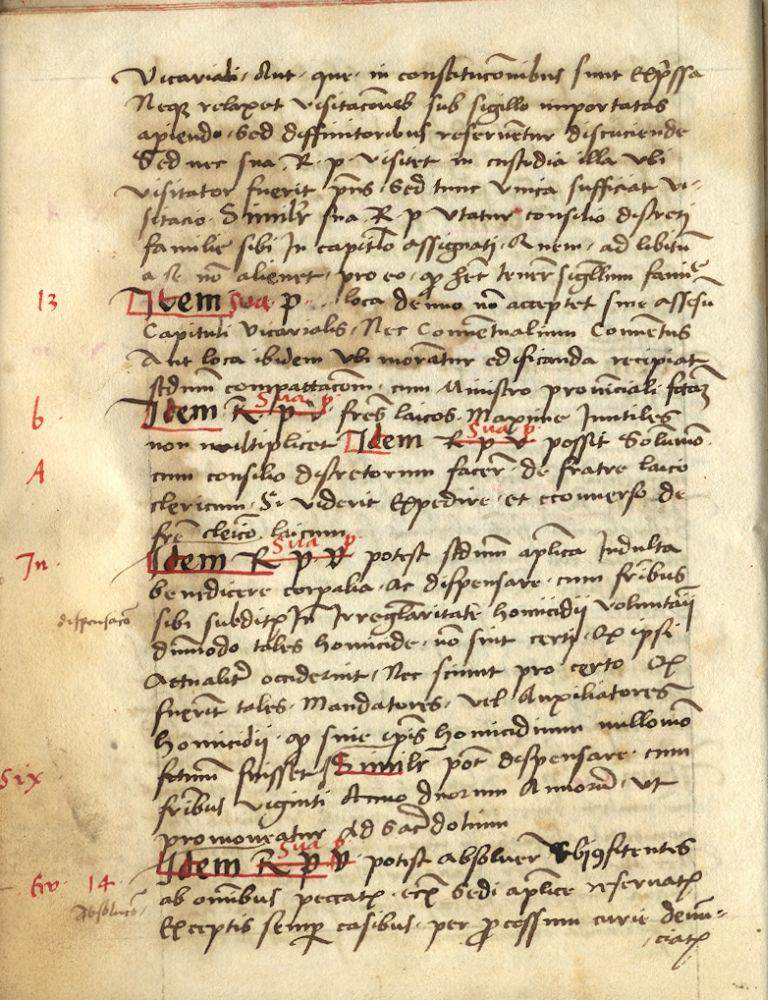 Vicariali · Aut · que · in constitucōnibus sunt exp̄ssa
Neqꝫ relaxet visitacōnes sub sigillo importatas
apiendo · Sed diffinitoribus reserventur discuciende
Sed nec sua · R · p · visitet in custodia illa vbi
visitator fuerit p̄ns · Sed tunc vnica sufficiat vi-
sitacio · Similr̄ sua R p vtatur consilio discreti
familie sibi in capitl̄o assignati · Quem · ad libitū
a se nō alienet · pro eo · ꝙ hēt tenēr sigillum
13 Item sua p loca de nuo nō acceptet sine assēsu
Capituli vicarialis · Nec Conuētualium Conuētus
Aut loca ibidem vbi morātur edificanda recipiat
scd̄um compactacōm · cum Ministro prouīciali
b Idem R p v sua p frēs laicos · Maxime Inutiles
non multiplicet Idem R p v sua p possit Solūmō
A cum consilio discretorum facer̄ · de fratre laico
clericum · Si viderit expedire · et econuerso de
frē clēico laicum
In Idem R p v sua p potest scd̄um ap̄lica Indulta
benedicere corpalia · Ac dispensare · cum fr̄ibus
dispensacō sibi subditis In Irreglaritate homicidii voluntarii
dūmodo tales homicide · nō sint certi · ꝙ ipsi
Actualitr̄ occiderint · Nec sciunt pro certo ꝙ
fuerīt tales · Mandatores · vel Auxiliatores
homicidii · ꝙ sine ip̄is homicidium nullomō
six fctum fuisset Similr̄ pōt dispensare · cum
fr̄ibus viginti Anno duorum Annorū · vt
promoueatur Ad sac̄dotium
14 Idem R p v sua p potest absoluer̄ sbi ꝯfitentes
absolucō ab omībus peccatis · eciā Sedi ap̄lice reseruatis
Exceptis semꝑ casibus · per ꝓcessum curie denū-
ciatis